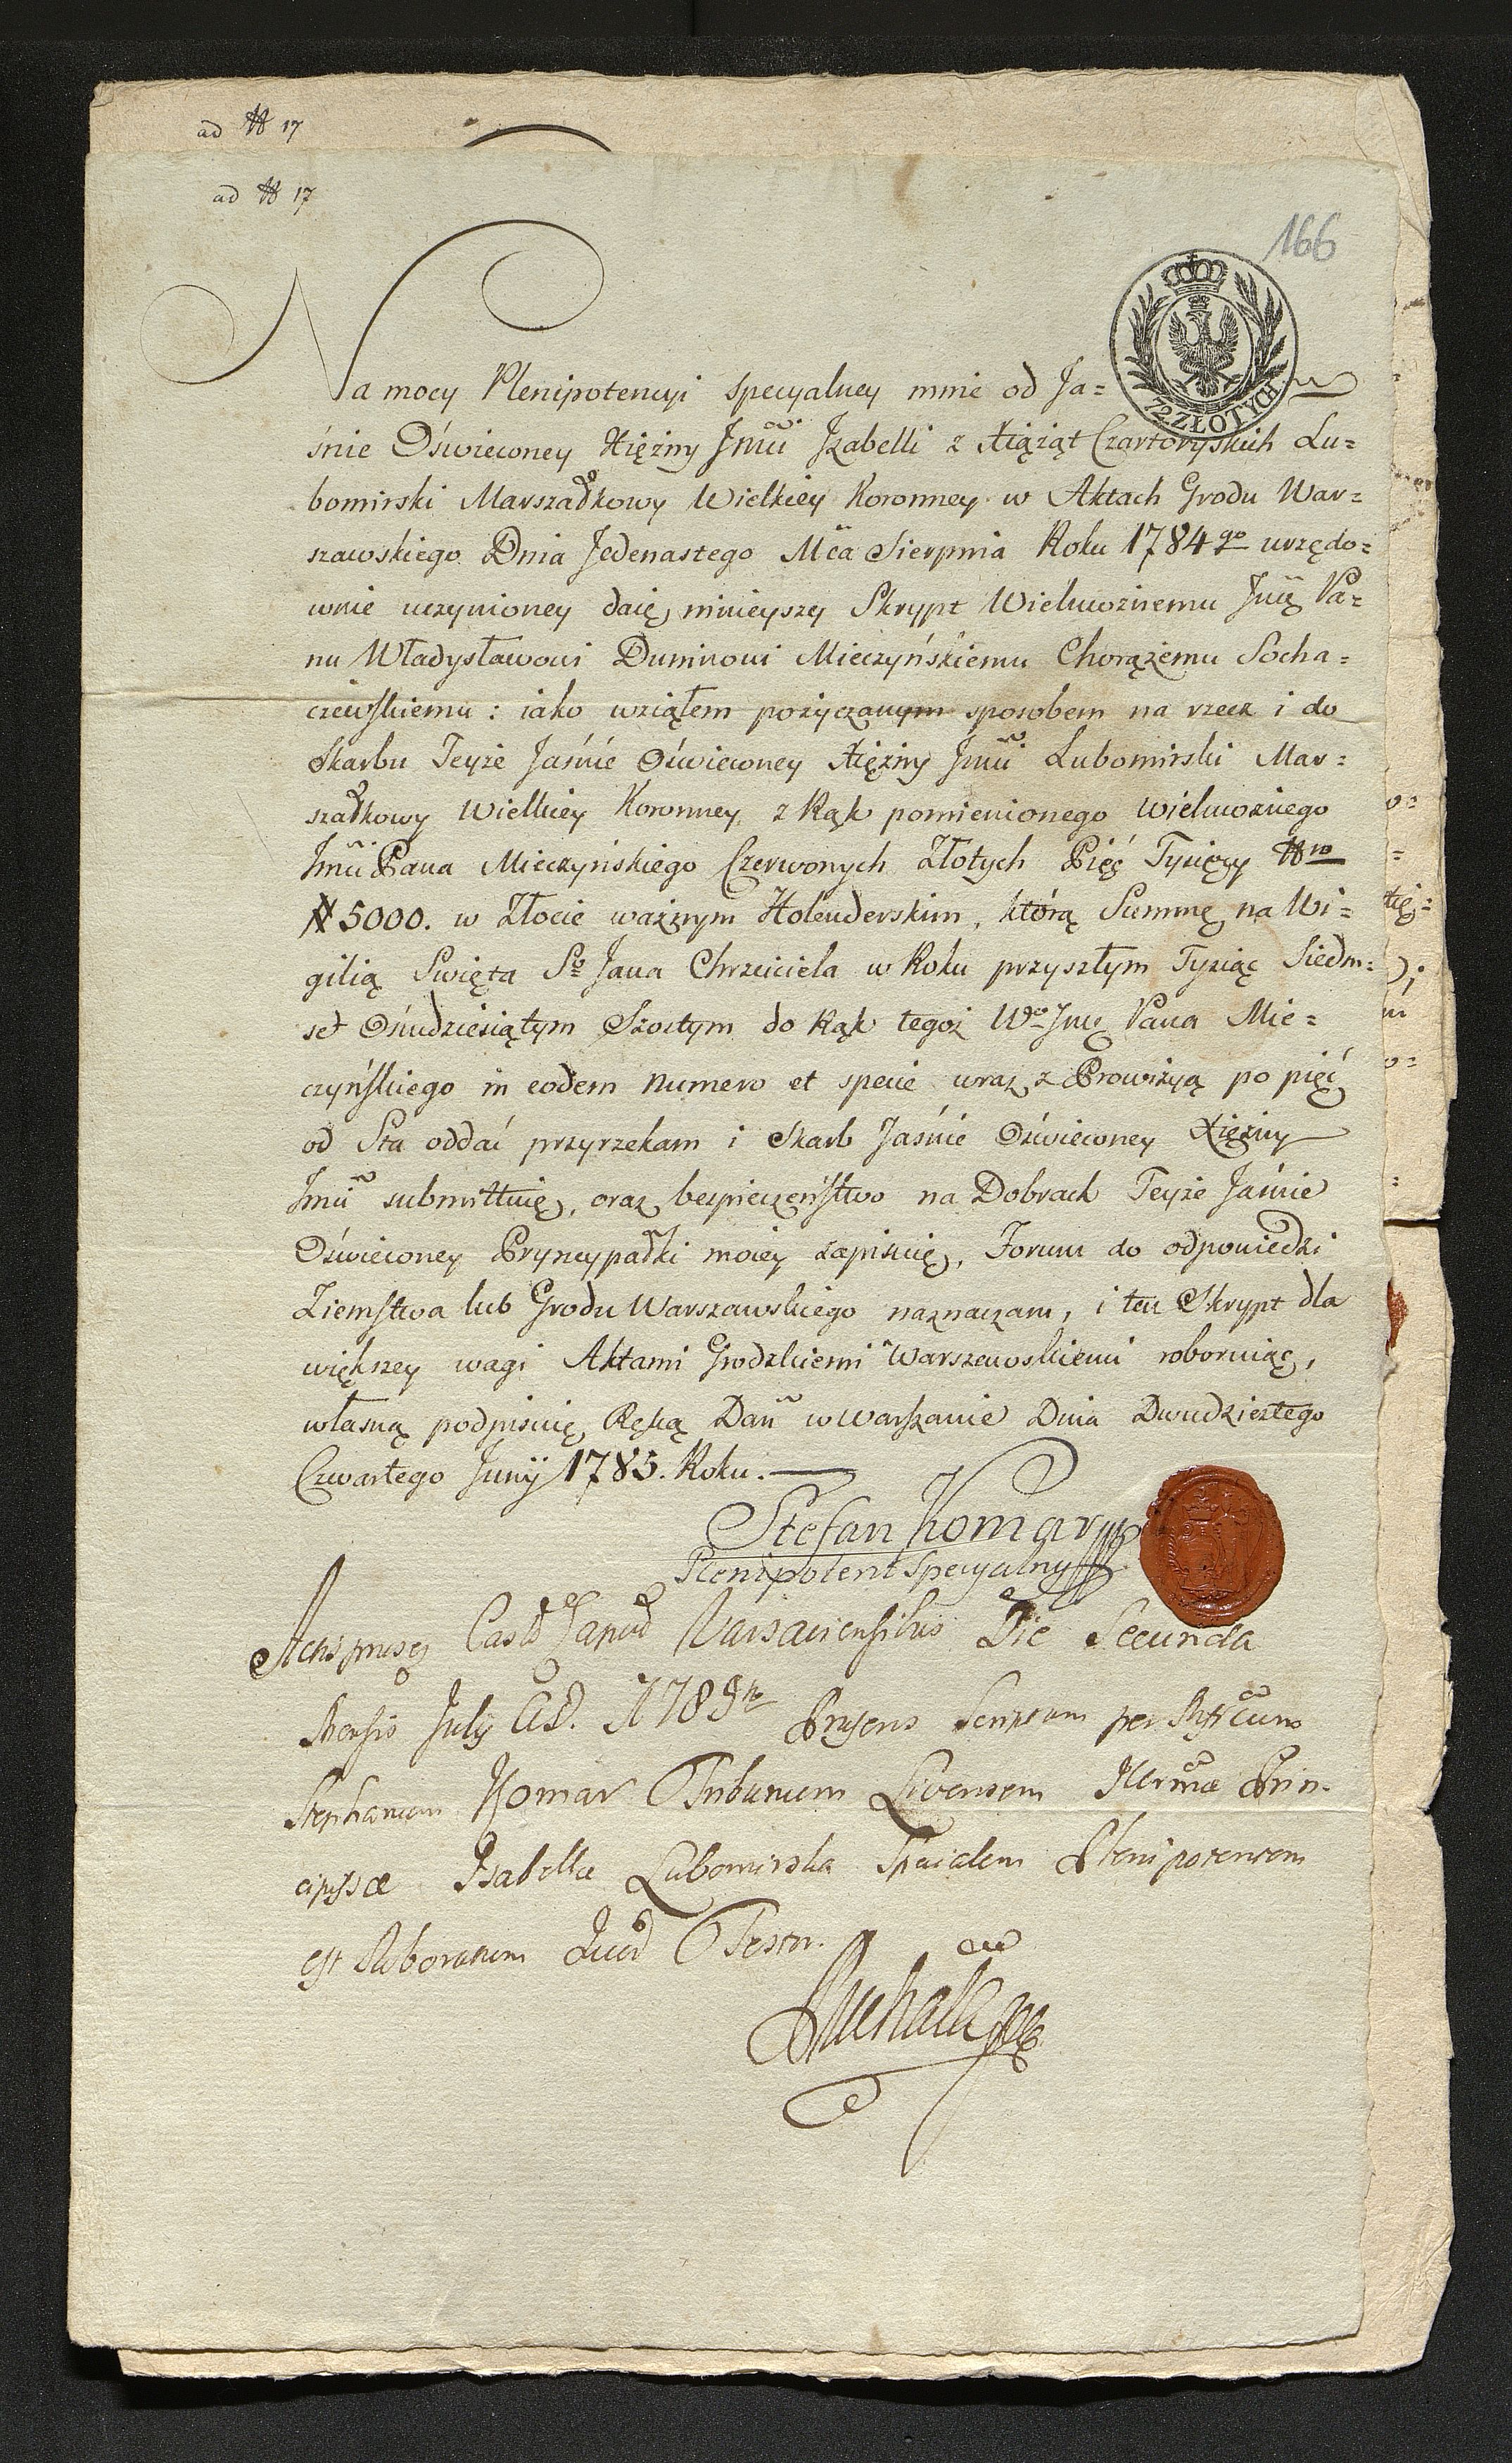 ad N 17
ad N 17
166
72 ZŁOTYCH
Na mocy Plenipotencyi specyalney mnie od Ja=
śnie Oświeconey Xiężny Jmci Jzabelli z Xiążąt Czartoryskich Lu=
bomirski Marszałkowy Wielkiey Koronney w Aktach Grodu War=
szawskiego Dnia Jedenastego Mca Sierpnia Roku 1784go urzędo=
wnie uczynioney daię ninieyszy Skrypt Wielmożnemu Jmę Pa=
nu Władysławowi Duninowi Mieczyńskiemu Chorążemu Socha=
czewskiemu: iako wziąłem pożyczanym sposobem na rzecz i do
Skarbu Teyże Jaśnie Oświeconey Xiężny Jmci Lubomirski Mar=
szałkowy Wielkiey Koronney z Rąk pomienionego Wielmożnego
Jmci Pana Mieczyńskiego Czerwonych Złotych Pięć Tysięcy Nro
# 5000. w Złocie ważnym Holenderskim, którą Summę na Wi=
gilią Swięta So Jana Chrzciciela w Roku przyszłym Tysiąc Siedm=
set Ośmdziesiątym Szostym do Rąk tegoż Wo Jmę Pana Mie=
czyńskiego in eodem numero et specie wraz z Prowizyą po pięć
od Sta oddać przyrzekam i Skarb Jaśnie Oświeconey Xiężny
Jmci submittuię, oraz bespieczeństwo na Dobrach Teyże Jaśnie
Oświeconey Pryncypałki moiey zapisuię, Forum do odpowiedzi
Ziemstwa lub Grodu Warszawskiego naznaczam, i ten Skrypt dla
większey wagi Aktami Grodzkiemi Warszawskiemi roboruiąc,
własną podpisuię Ręką Dań w Warszawie Dnia Dwudziestego
Czwartego Junij 1785. Roku.
Stefan Komar
Plenipotent Specyalny
Actis Castr Varsaviensibus Die Secunda
Mensis July Ad. 1785to Prasens Scriptum per Mgfcum
Stephanum Komar Tribunum Livensem Jllrmæ Prin-
cipissæ Jsabellæ Lubomirska Specialem Plenipotentem
est Roboratum Quod Testor.